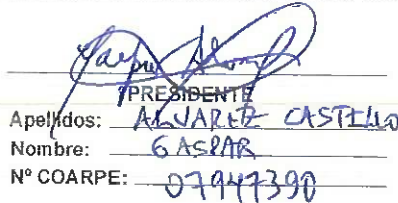 Gaspar Alvarez
PRESIDENTE
Apellidos: ALVAREZ CASTILLO
Nombre: GASPAR
Nº COARPE: 07947390